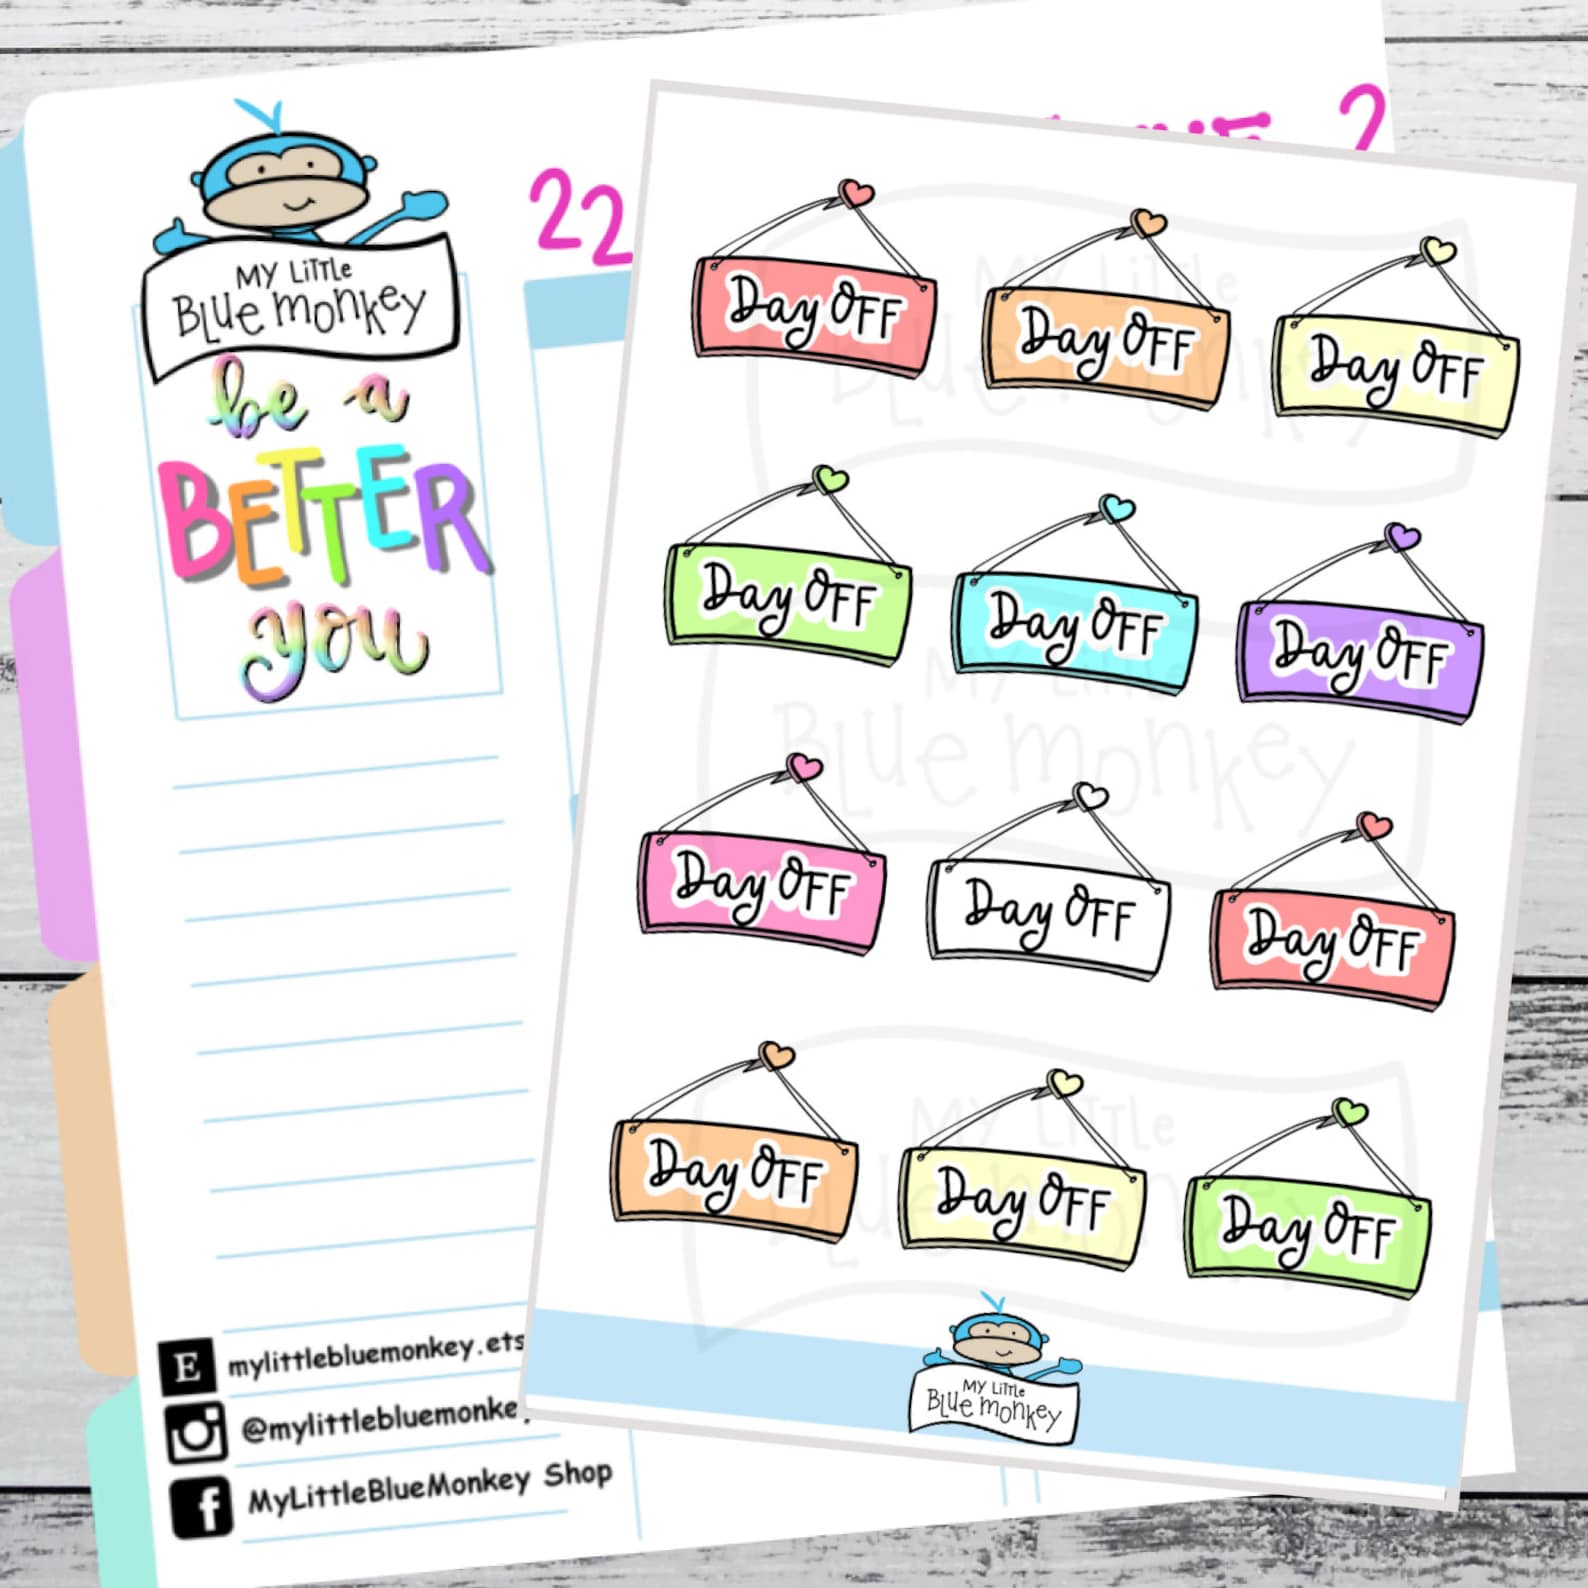 MY LITTLE
BLUE MONKEY
be a
BETTER
you
22
2
E mylittlebluemonkey.ets
@mylittlebluemonke
f MyLittleBlueMonkey Shop
Day OFF
Day OFF
Day OFF
Day OFF
Day OFF
Day OFF
Day OFF
Day OFF
Day OFF
Day OFF
Day OFF
Day OFF
MY LITTLE
BLUE MONKEY
MY LITTLE
BLUE MONKEY
MY LITTLE
BLUE MONKEY
MY LITTLE
BLUE MONKEY